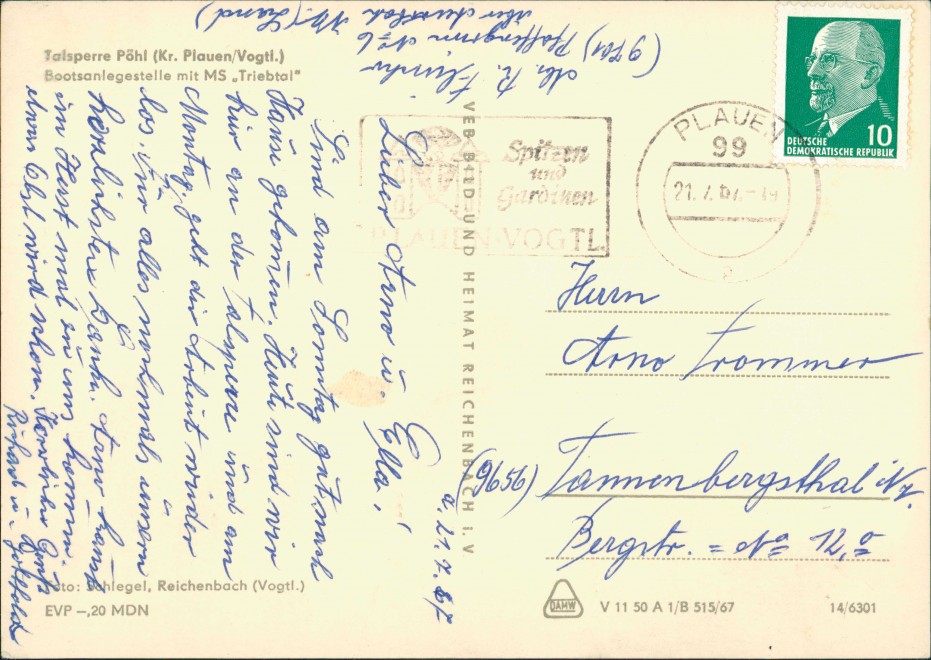 Talsperre Pöhl (Kr. Plauen/Vogtl.)
Bootsanlegestelle mit MS „Triebtal"
Abs. R.
(9701) Pfaffengrün No 6
über
d. 21.7.67
Lieber Arno u. Ella!
Sind am Sonntag gut nach
Hause gekomen. Heute sind wir
hier an der Talsperre und am
Montag geht die Arbeit wieder
los. Für alles nochmals unsern
herzlichsten Dank. Arno kannst
im Herbst mal zu uns kommen
denn Obst wird schon. Herzliche Grüße
Richard u.
Foto: Schlegel, Reichenbach (Vogtl.)
EVP –,20 MDN
VEB BILD UND HEIMAT REICHENBACH i. V
Spitzen
und
Gardinen
PLAUEN-VOGTL.
PLAUEN
99
21.7.67.-19
DEUTSCHE
DEMOKRATISCHE REPUBLIK
10
Herrn
Arno Trommer
(9656) Tannenbergsthal i/V.
Bergstr. = No 12,o
DAMW
V 11 50 A 1/B 515/67
14/6301